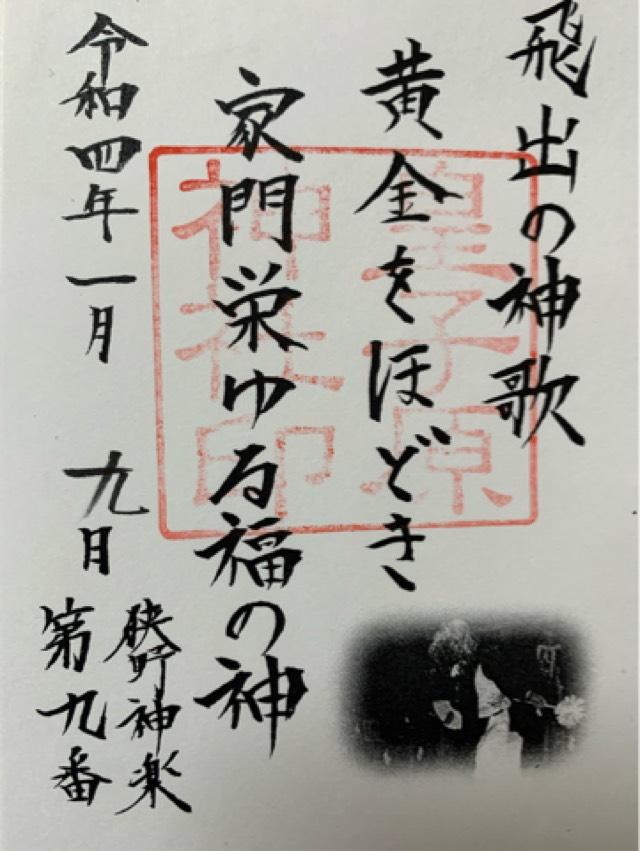 飛出の神歌
黄金をほどき
家門栄ゆる福の神
令和四年一月 九日
狭野神楽
第九番
皇子原
神社印